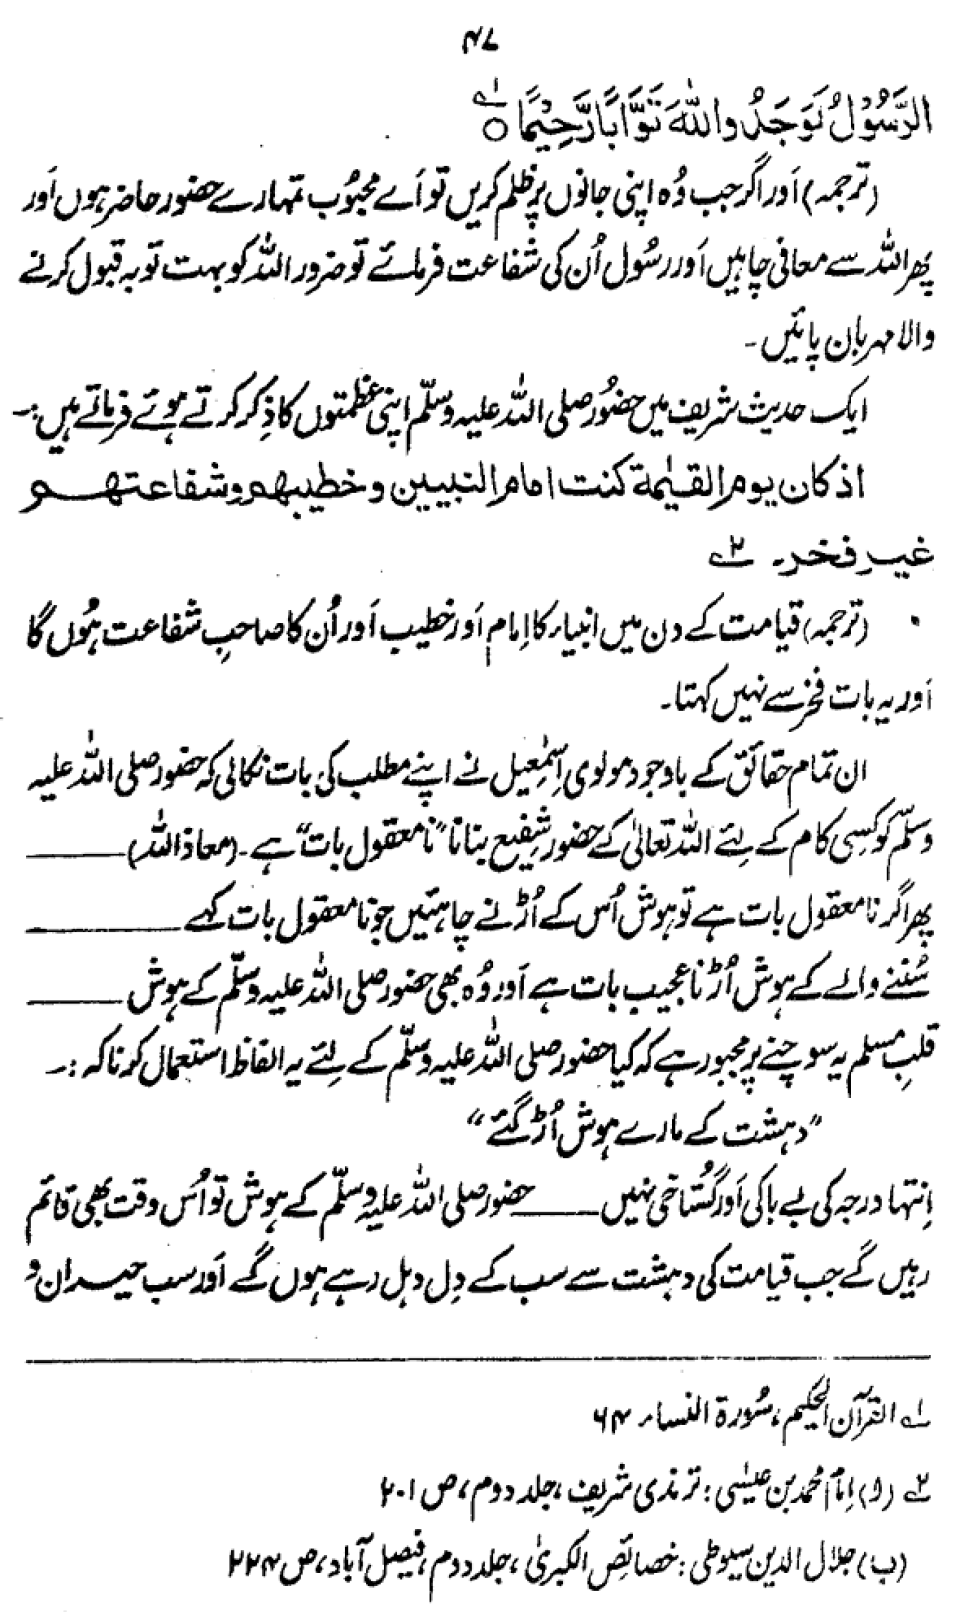 ۴۷
الرَّسُوْلُ لَوَجَدُ واللّٰهَ تَوَّابًا رَّحِيْمًا ○ ؎۱
(ترجمہ) اَور اگر جب وُہ اپنی جانوں پر ظلم کریں تو اَے محبُوب تمہارے حضور حاضر ہوں اَور
پھر اللہ سے معافی چاہیں اَور رسُول اُن کی شفاعت فرمائے تو ضرور اللہ کو بہت توبہ قبول کرنے
والا مہربان پائیں۔
ایک حدیث شریف میں حضُور صلی اللہ علیہ وسلّم اپنی عظمتوں کا ذِکر کرتے ہوئے فرماتے ہیں :۔
اذ كان يوم القيٰمة كنت امام النبيين وخطيبهم وشفاعتهم
غير فخر۔ ؎۲
(ترجمہ) قیامت کے دن میں انبیاء کا اِمام اَور خطیب اَور اُن کا صاحبِ شفاعت ہُوں گا
اَور یہ بات فخر سے نہیں کہتا۔
ان تمام حقائق کے باوجود مولوی اِسمٰعیل نے اپنے مطلب کی بات نکالی کہ حضور صلی اللہ علیہ
وسلّم کو کسِی کام کے لئے اللہ تعالیٰ کے حضور شفیع بنانا ”نامعقول بات“ ہے۔ (معاذ اللہ) ______
پھر اگر نامعقول بات ہے تو ہوش اُس کے اُڑنے چاہئیں جو نامعقول بات کہے ______
سُننے والے کے ہوش اُڑنا عجیب بات ہے اَور وُہ بھی حضور صلی اللہ علیہ وسلّم کے ہوش ______
قلبِ مسلم یہ سوچنے پر مجبور ہے کہ کیا حضور صلی اللہ علیہ وسلّم کے لئے یہ الفاظ استعمال کرنا کہ :۔
”دہشت کے مارے ہوش اُڑ گئے“
اِنتہا درجہ کی بے باکی اَور گُستاخی نہیں ______ حضور صلی اللہ علیہ وسلّم کے ہوش تو اُس وقت بھی قائم
رہیں گے جب قیامت کی دہشت سے سب کے دِل دہل رہے ہوں گے اَور سب حیران و
؎۱ القرآن الحکیم، سُورۃ النساء ۶۴
؎۲ (ا) اِمام محمد بن عیسٰی : ترمذی شریف، جلد دوم، ص ۲۰۱
(ب) جلال الدین سیوطی : خصائص الکبریٰ، جلد دوم، فیصل آباد، ص ۲۲۴